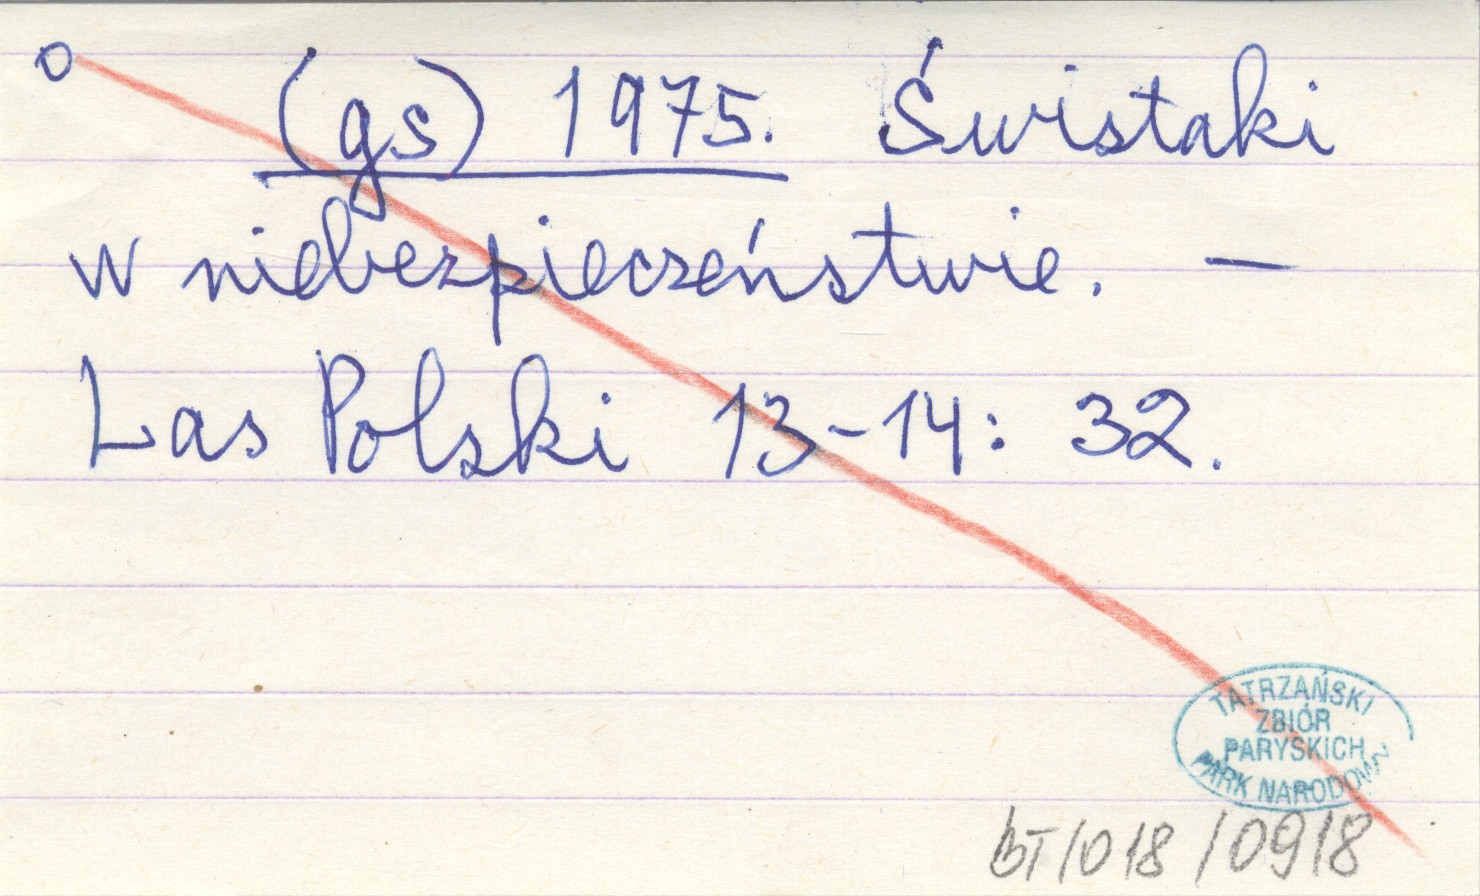 o
(gs) 1975. Świstaki
w niebezpieczeństwie. —
Las Polski 13-14: 32.
TATRZAŃSKI
ZBIÓR
PARYSKICH
PARK NARODOWY
bT/018/0918